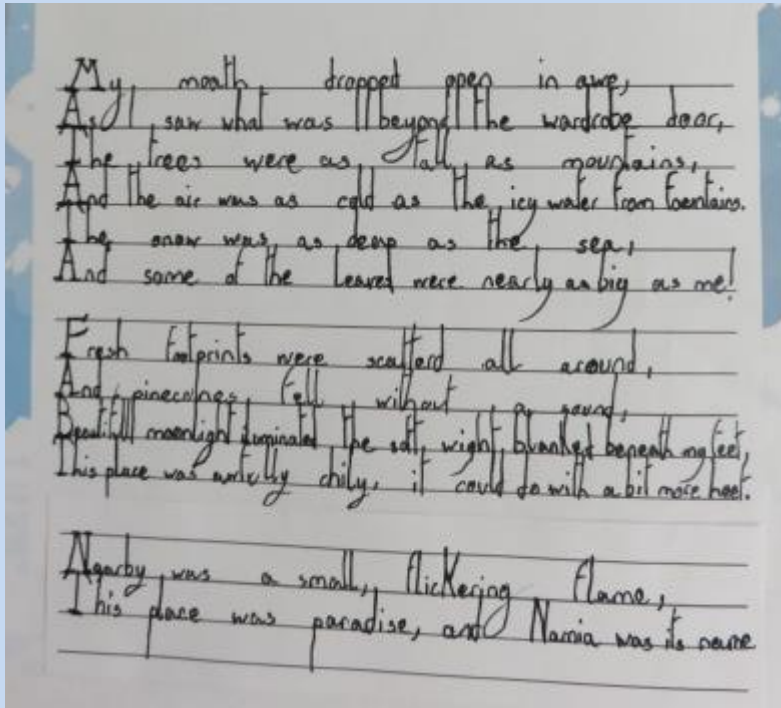 My moath dropped open in awe,
As I saw what was beyond the wardrobe door,
The trees were as tall as mountains,
And the air was as cold as the icy water from fountains.
The snow was as deep as the sea,
And some of the leaves were nearly as big as me!
Fresh footprints were scatterd all around,
And pinecones fell without a sound,
Beautifull moonlight iluminated the soft, wight blanked beneath my feet,
This place was awfully chily, it could do with a bit more heet.
Nearby was a small, flickering flame,
This place was paradise, and Narnia was its name